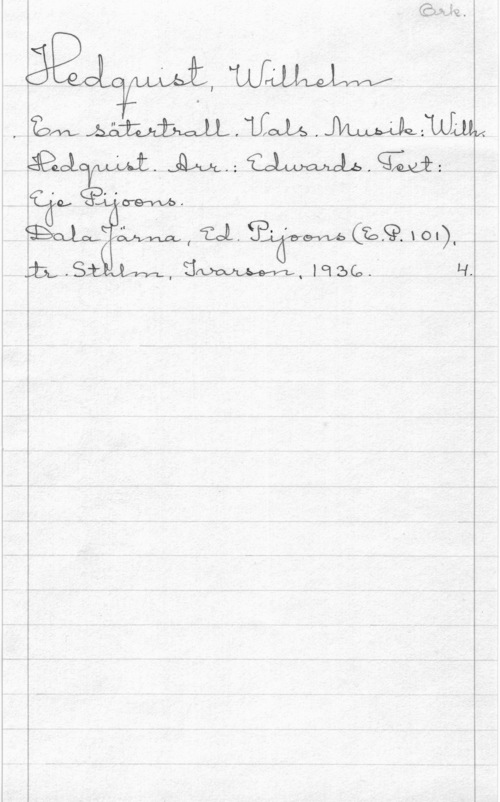 Ork.
Hedquist, Wilhelm
En sätertrall. Vals. Musik: Wilh.
Hedquist. Arr.: Edwards. Text:
Eje Pijoons.
Dala Järna, Ed. Pijoons (E.P. 101),
tr. Sthlm, Ivarson, 1936. 4.